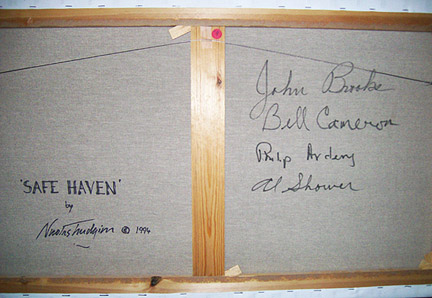 'SAFE HAVEN'
by
Nicolas Trudgian © 1994
John Brooke
Bill Cameron
Philip Ardery
Al Shower